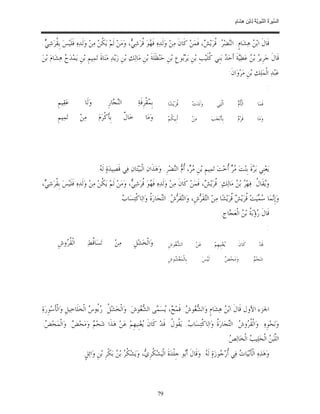 السيرة النبوية لابن هشام
قَالَ ابْنُ هِشَامٍ: النَّضْرُ: قُرَيْشٌ، فَمَنْ كَانَ مِنْ وَلَدِهِ فَهُوَ قُرَشِيٌّ، وَمَنْ لَمْ يَكُنْ مِنْ وَلَدِهِ فَلَيْسَ بِقُرَشِيٍّ
قَالَ جَرِيرُ بْنُ عَطِيَّةَ أَحَدُ بَنِي كُلَيْبِ بْنِ يَرْبُوعِ بْنِ حَنْظَلَةَ بْنِ مَالِكِ بْنِ زَيْدِ مَنَاةَ تَمِيمٍ بْنِ يَمْدَحُ هِشَامَ بْنَ
عَبْدِ الْمَلِكِ بْنِ مَرْوَانَ:
فَمَا الْأُمُّ الَّتِي وَلَدَتْ قُرَيْشًا بِمُقْرِفَةِ النِّجَارِ وَلَا عَقِيمِ
وَمَا قَرْمٌ بِأَنْجَبَ مِنْ أَبِيكُمْ وَمَا خَالٌ بِأَكْرَمَ مِنْ تَمِيمِ
يَعْنِي بَرَّةَ بِنْتَ مُرٍّ أُخْتَ تَمِيمِ بْنِ مُرٍّ، أُمَّ النَّضْرِ. وَهَذَانِ الْبَيْتَانِ فِي قَصِيدَةٍ لَهُ
وَيُقَالُ: فِهْرُ بْنُ مَالِكٍ: قُرَيْشٌ، فَمَنْ كَانَ مِنْ وَلَدِهِ فَهُوَ قُرَشِيٌّ، وَمَنْ لَمْ يَكُنْ مِنْ وَلَدِهِ فَلَيْسَ بِقُرَشِيٍّ،
وَإِنَّمَا سُمِّيَتْ قُرَيْشٌ قُرَيْشًا مِنْ التَّقَرُّشِ، وَالتَّقَرُّشُ: التِّجَارَةُ وَالِاكْتِسَابُ
قَالَ رُؤْبَةُ بْنُ الْعَجَّاجِ
قَدْ كَانَ يُغْنِيهِمْ عَنْ الشُّغُوشِ وَالْخَشْلِ مِنْ تَسَاقُطِ الْقُرُوشِ
شَحْمٌ وَمَحْضٌ لَيْسَ بِالْمَغْشُوشِ
الجزء الأول قَالَ ابْنُ هِشَامٍ وَالشُّغُوشُ: قَمْحٌ، يُسَمَّى الشُّغُوشَ. وَالْخَشْلُ: رُءُوسُ الْخَلَاخِيلِ وَالْأَسْوِرَةِ
وَنَحْوِهِ. وَالْقُرُوشُ: التِّجَارَةُ وَالِاكْتِسَابُ. يَقُولُ: قَدْ كَانَ يُغْنِيهِمْ عَنْ هَذَا شَحْمٌ وَمَحْضٌ. وَالْمَحْضُ:
اللَّبَنُ الْحَلِيبُ الْخَالِصُ
وَهَذِهِ الْأَبْيَاتُ فِي أُرْجُوزَةٍ لَهُ. وَقَالَ أَبُو جِلْدَةَ الْيَشْكُرِيُّ، وَيَشْكُرُ بْنُ بَكْرِ بْنِ وَائِلٍ
79